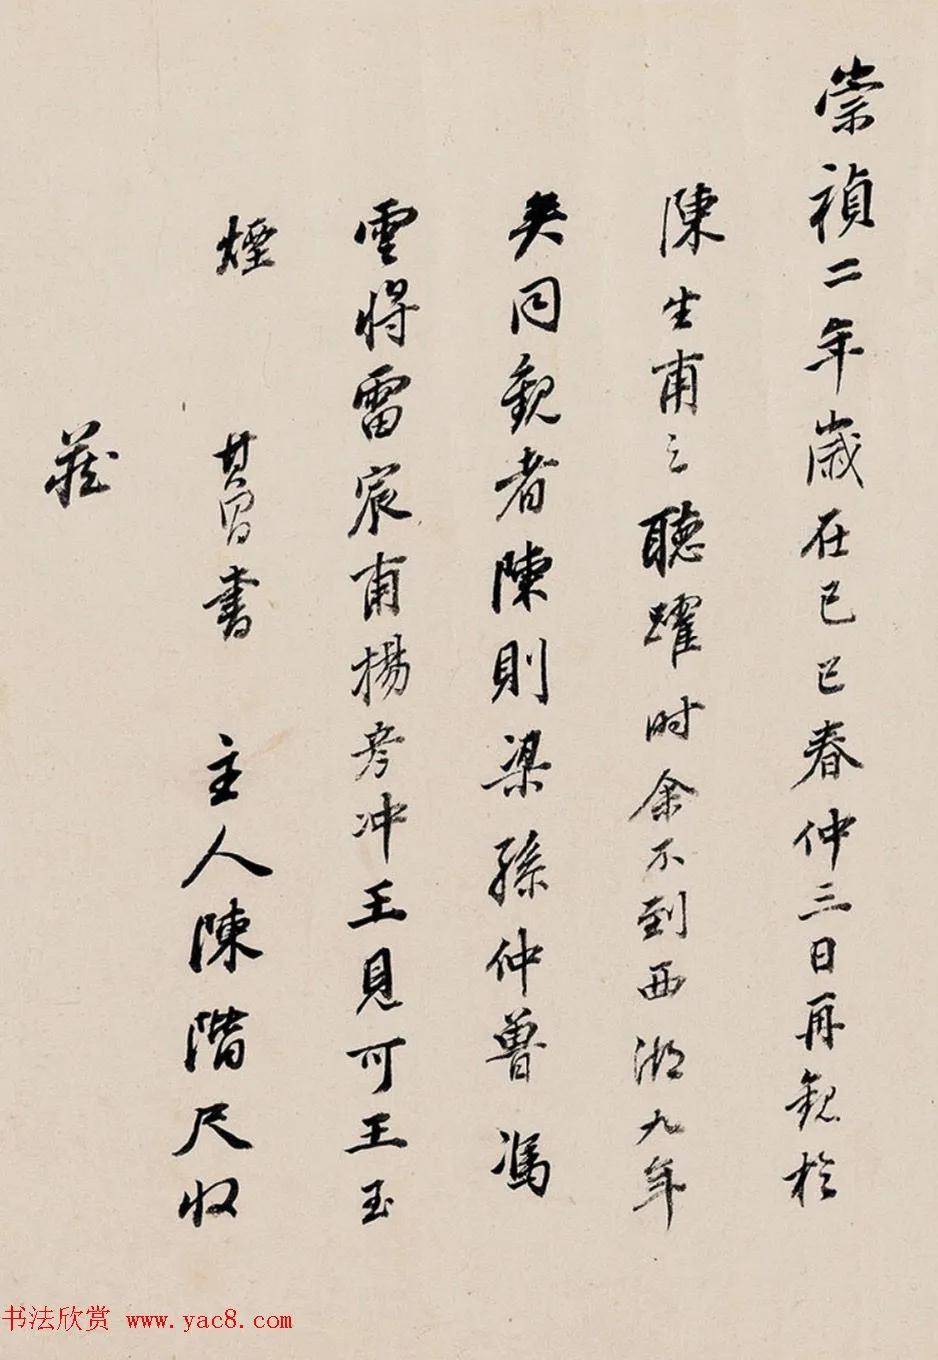 崇禎二年歲在己巳春仲三日再觀於
陳生甫之聽躍时余不到西湖九年
矣同觀者陳則梁孫仲魯馮
雲将雷宸甫楊彦冲王見可王玉
煙 其昌書 主人陳階尺收
藏
书法欣赏 www.yac8.com